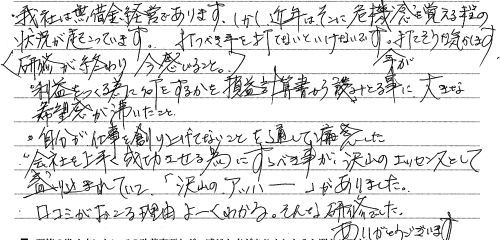 ・我社は無借金経営であります。しかし近年はそこに危機感を覚える程の
状況が起こっています。打つべき手を打てないといけないです。打てそうな気がします
今が
〈研修が終わり今感じること。〉
・利益をつくる為に何をするかを損益計算書から読みとる事に大きな
希望感が沸いたこと
・自分が仕事を創り上げてないことを通して痛感した
・会社を上手く成功させる為にすべき事が沢山のエッセンスとして
盛り込まれていて、「沢山のアッハー」がありました。
・口コミがおこる理由よーくわかる。そんな研修でした。
ありがとうございます